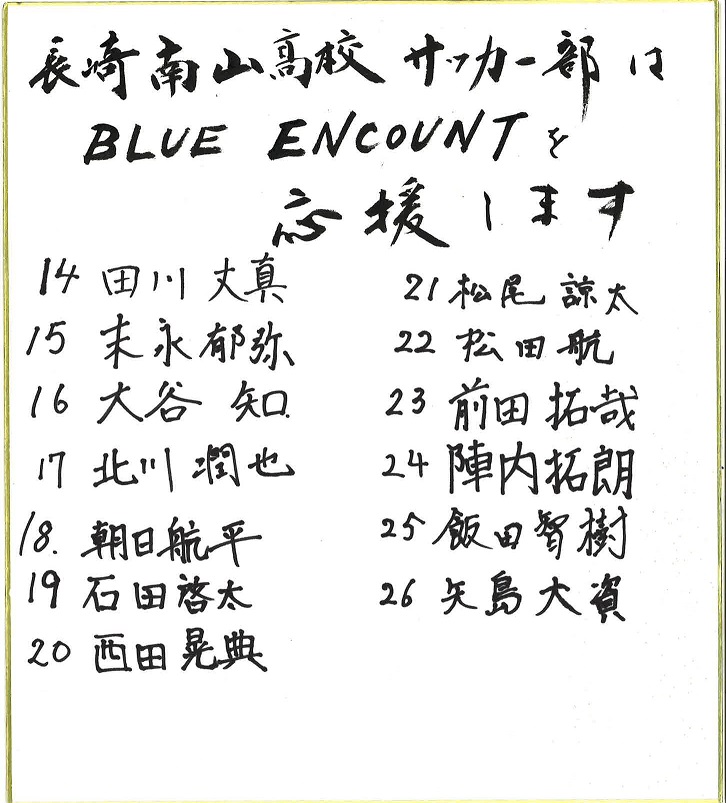 長崎南山高校 サッカー部 は
BLUE ENCOUNT を
応援します
14 田川 丈真
15 末永郁弥
16 大谷 知
17 北川 潤也
18. 朝日航平
19 石田啓太
20 西田晃典
21 松尾 諒太
22 松田航
23 前田拓哉
24 陣内拓朗
25 飯田智樹
26 矢島大資